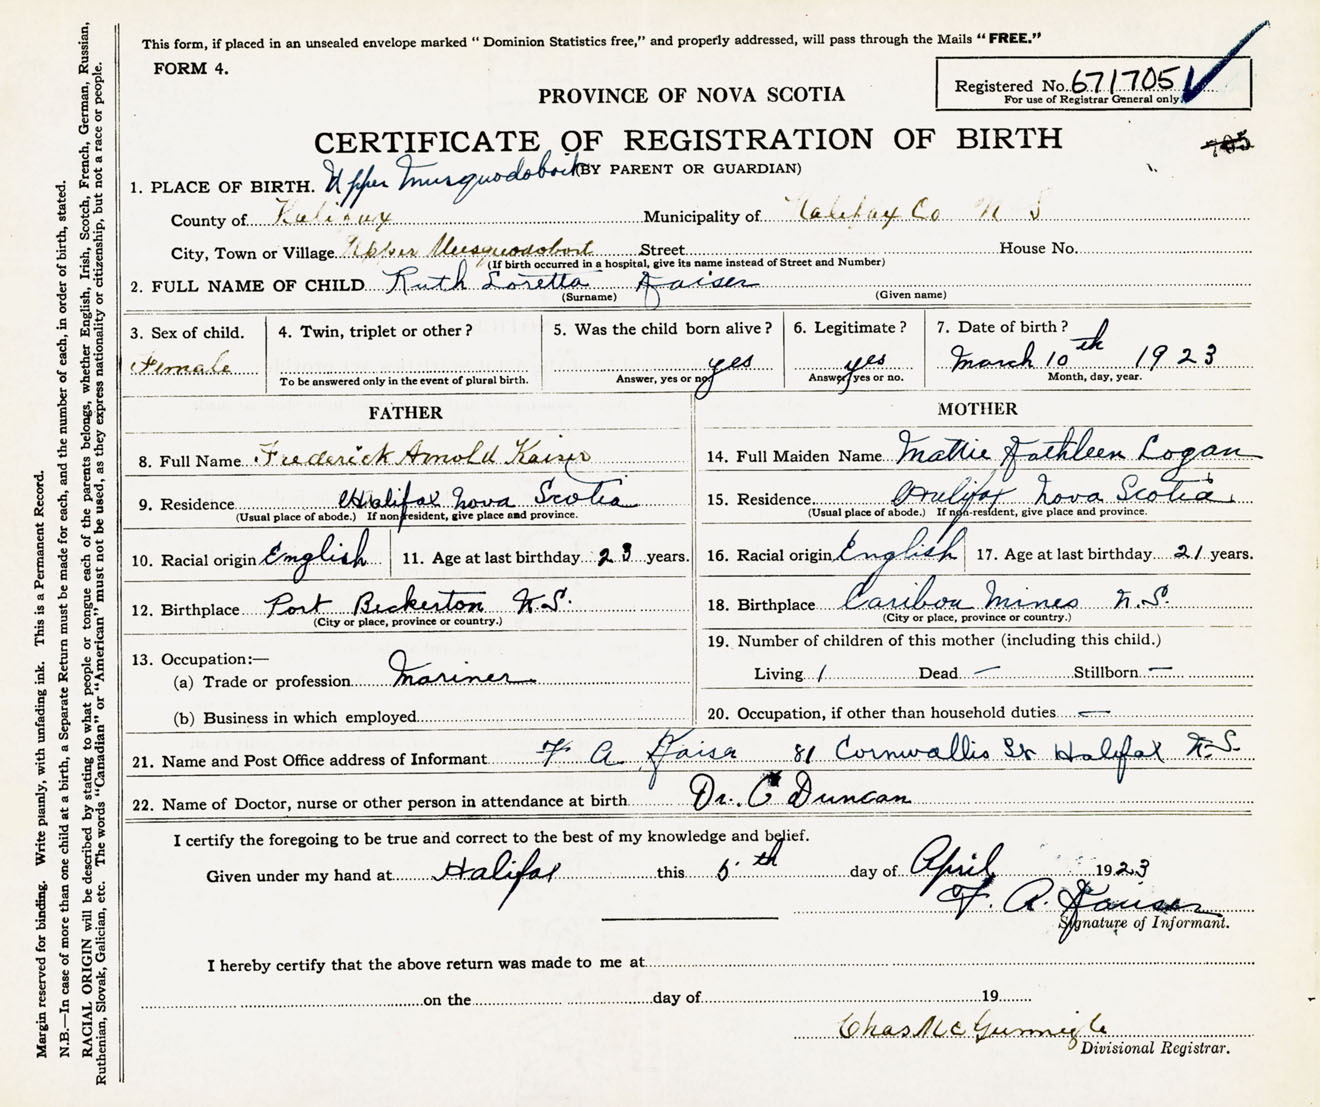 This form, if placed in an unsealed envelope marked “ Dominion Statistics free,” and properly addressed, will pass through the Mails “FREE.”
FORM 4.
Registered No. 671705
For use of Registrar General only.
PROVINCE OF NOVA SCOTIA
CERTIFICATE OF REGISTRATION OF BIRTH
705
(BY PARENT OR GUARDIAN)
1. PLACE OF BIRTH. Upper Musquodoboit
County of Halifax Municipality of Halifax Co N S
City, Town or Village Upper Musquodoboit Street House No.
(If birth occurred in a hospital, give its name instead of Street and Number)
2. FULL NAME OF CHILD Ruth Loretta Kaiser
(Surname) (Given name)
3. Sex of child. Female
4. Twin, triplet or other ?
To be answered only in the event of plural birth.
5. Was the child born alive ? yes
Answer, yes or no
6. Legitimate ? yes
Answer, yes or no.
7. Date of birth ? March 10th 1923
Month, day, year.
FATHER
8. Full Name Frederick Arnold Kaiser
9. Residence Halifax Nova Scotia
(Usual place of abode.) If non-resident, give place and province.
10. Racial origin English 11. Age at last birthday 23 years.
12. Birthplace Port Beckerton N.S.
(City or place, province or country.)
13. Occupation:—
(a) Trade or profession Mariner
(b) Business in which employed
MOTHER
14. Full Maiden Name Mattie Kathleen Logan
15. Residence Halifax Nova Scotia
(Usual place of abode.) If non-resident, give place and province.
16. Racial origin English 17. Age at last birthday 21 years.
18. Birthplace Caribou Mines N.S.
(City or place, province or country.)
19. Number of children of this mother (including this child.)
Living 1 Dead — Stillborn —
20. Occupation, if other than household duties —
21. Name and Post Office address of Informant F A Kaiser 81 Cornwallis St Halifax N.S.
22. Name of Doctor, nurse or other person in attendance at birth Dr. C Duncan
I certify the foregoing to be true and correct to the best of my knowledge and belief.
Given under my hand at Halifax this th day of April 1923
F. A. Kaiser
Signature of Informant.
I hereby certify that the above return was made to me at
on the day of 19
Chas Mc Gunnigle
Divisional Registrar.
Margin reserved for binding. Write plainly, with unfading ink. This is a Permanent Record.
N.B.—In case of more than one child at a birth, a Separate Return must be made for each, and the number of each, in order of birth, stated.
RACIAL ORIGIN will be described by stating to what people or tongue each of the parents belongs, whether English, Irish, Scotch, French, German, Russian,
Ruthenian, Slovak, Galician, etc. The words “Canadian” or “American” must not be used, as they express nationality or citizenship, but not a race or people.